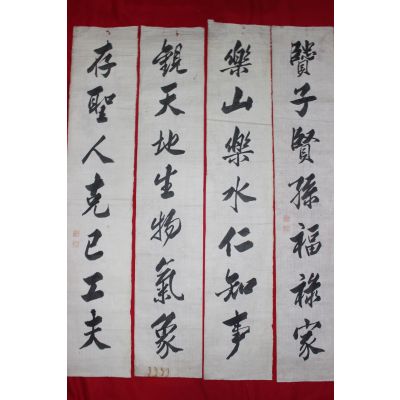 賢子賢孫福祿家
樂山樂水仁知事
觀天地生物氣象
存聖人克己工夫